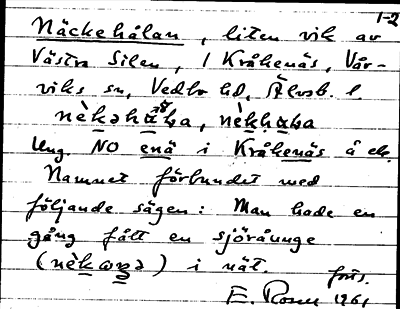 1-2
Näckehålan, liten vik av
Västra Silen, i Kråkenäs, Vår-
viks sn, Vedbo hd, Älvsb. l.
Ung. NO enä i Kråkenäs å ek.
Namnet förbundet med
följande sägen: Man hade en
gång fått en sjöråunge
i nät.
forts.
E. Rosen 1961